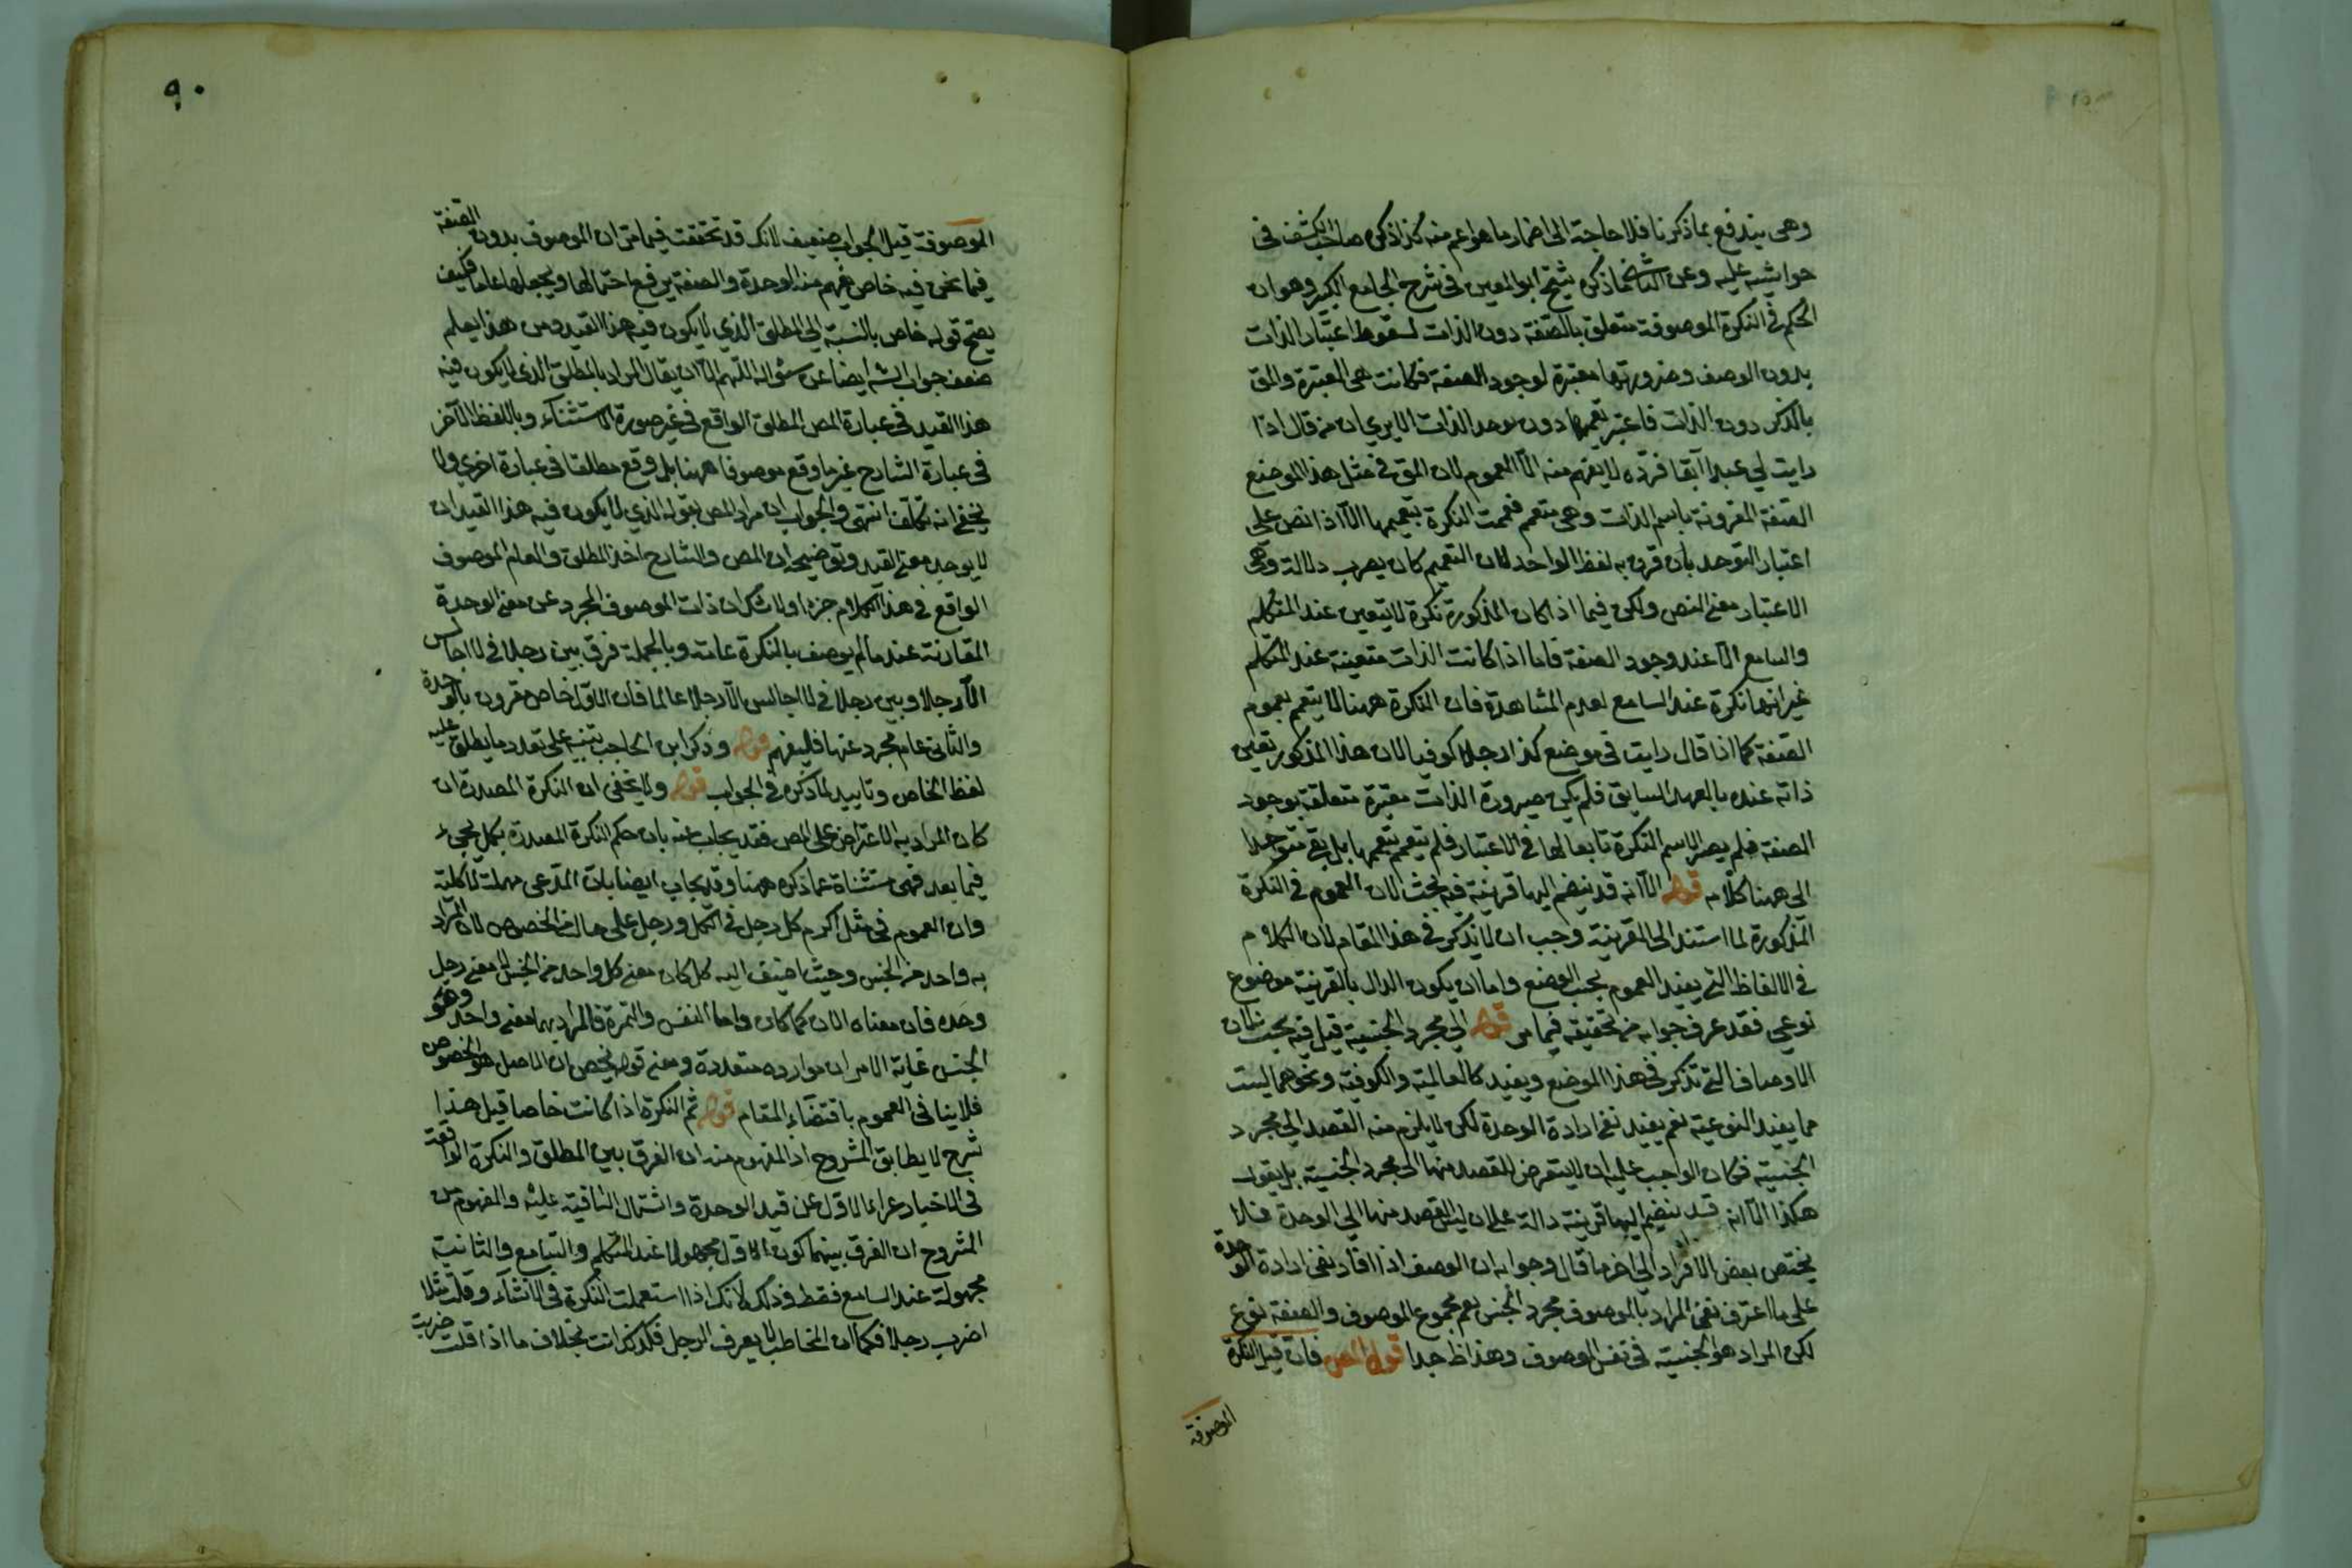 وهى يندفع بما ذكرنا فلا حاجة الى اضمار ما هو اعم منه كذا ذكره صاحب الكشف فى
حواشيه عليه وعن الشيخ ما ذكره شيخ ابو المعين فى شرح الجامع الكبير وهو ان
الحكم فى النكرة الموصوفة متعلق بالصفة دون الذات لسقوط اعتبار الذات
بدون الوصف وضرورتها معتبرة لوجود الصفة فكانت هى المعتبرة والمق
بالذكر دون الذات فاعتبر تعميمها دون توحد الذات الا يرى ان من قال اذا
رايت لى عبدا آبقا فرده لا يفهم منه الا العموم لان المق فى مثل هذا الموضع
الصفة المقرونة باسم الذات وهى متعمم فعمت النكرة بتعميمها الا اذا نص على
اعتبار التوحد بان قرن به لفظ الواحد لان التعميم كان يعرب دلالة وهى
الاعتبار معنى النص ولكن فيما اذا كان المذكورة نكرة لا يتعين عند المتكلم
والسامع الا عند وجود الصفة فاما اذا كانت الذات متعينة عند المتكلم
غير انها نكرة عند السامع لعدم المشاهدة فان النكرة ههنا لا يتعمم بعموم
الصفة كما اذا قال رايت فى موضع كذا رجلا كوفيا لان هذا المذكور تعين
ذاته عنده بالعهد السابق فلم يكن صيرورة الذات معتبرة متعلقة بوجود
الصفة فلم يصر الاسم النكرة تابعا لها فى الاعتبار فلم يتعمم بتعممها بل بقى متوحدا
الى ههنا كلامه قوله الا انه قد ينضم اليها قرينة فيه بحث لان العموم فى النكرة
المذكورة لما استند الى القرينة وجب ان لا يذكر فى هذا المقام لان الكلام
فى الالفاظ التى يفيد العموم بحسب الوضع واما ان يكون الدال بالقرينة موضوع
نوعى فقد عرف جوابه من تحقيقه فيما مر قوله الى مجرد الجنسية قيل فيه بحث لان
الاوصاف التى تذكر فى هذا الموضع ويفيد كالعالمية والكوفية ونحوهما ليست
مما يفيد النوعية نعم يفيد نفى ارادة الوحدة لكن لا يلزم منه القصد الى مجرد
الجنسية فكان الواجب عليه ان لا يتعرض للقصد منها الى مجرد الجنسية بل يقول
هكذا الا انه قد ينضم اليها قرينة دالة على ان ليس القصد منها الى الوحدة فلا
يختص بعض الافراد الى اخر ما قال وجوابه ان الوصف اذا افاد نفى ارادة الوحدة
على ما اعترف نفى المراد بالموصوف مجرد الجنس نعم مجموع الموصوف والصفة نوع
لكن المراد هو الجنسية فى نفس الموصوف وهذا ظ جدا قوله المص فان قيل النكرة
الموصوفة
٩٠
الموصوفة قيل الجواب ضعيف لانك قد تحققت فيما مر ان الموصوف بدون الصفة
فيما نحن فيه خاص يفهم منه الوحدة والصفة يرفع احتمالها ويجعلها عاما فكيف
يصح قوله خاص بالنسبة الى المطلق الذي لا يكون فيه هذا القيد ومن هذا يعلم
ضعف جواب الشه ايضا عن سؤاله اللهم الا ان يقال المراد بالمطلق الذي لا يكون فيه
هذا القيد فى عبارة المص المطلق الواقع فى غير صورة الاستثناء وباللفظ الآخر
فى عبارة الشارح غير ما وقع موصوفا ههنا بل وقع مطلقا فى عبارة اخرى ولا
يخفى انه تكلف انتهى والجواب ان مراد المص بقوله الذي لا يكون فيه هذا القيد ان
لا يوجد معنى القيد وتوضيحه ان المص والشارح اخذ المطلق والعام الموصوف
الواقع فى هذا الكلام جزءا ولا شك ان ذات الموصوف المجرد عن معنى الوحدة
المقارنة عند ما لم يوصف بالنكرة عامة وبالجملة فرق بين رجلا فى لا اجالس
الا رجلا وبين رجلا فى لا اجالس الا رجلا عالما فان الاول خاص مقرون بالوحدة
والثانى عام مجرد عنها فليفهم قوله وذكر ابن الحاجب تنبيه على تعدد ما يطلق عليه
لفظ الخاص وتاييد لما ذكره فى الجواب قوله ولا يخفى ان النكرة المصدرة ان
كان المراد به الاعتراض على المص فقد يجاب عنه بان حكم النكرة المصدرة بكل يجىء
فيما بعد فهى مستثناة عما ذكره ههنا وقد يجاب ايضا بان المدعى مهملة لا كلية
وان العموم فى مثل اكرم كل رجل فى الكل ورجل على حاله من الخصوص لان المراد
به واحد من الجنس وحيث اضيف اليه كل كان معنى كل واحد من الجنس لا معنى رجل
وحده فان معناه الان كما كان واما النفس والتمرة فالمراد بهما معنى واحد وهو
الجنس غاية الامر ان موارده متعددة ومعنى قوله يخص ان الاصل هو الخصوص
فلا ينافى العموم باقتضاء المقام قوله ثم النكرة اذا كانت خاصا قيل هذا
شرح لا يطابق المشروح اذ المفهوم منه ان الفرق بين المطلق والنكرة الواقعة
فى الاخبار عراء الاول عن قيد الوحدة واشتمال الثانية عليه والمفهوم من
المشروح ان الفرق بينهما كون الاول مجهولا عند المتكلم والسامع والثانية
مجهولة عند السامع فقط وذلك لانك اذا استعملت النكرة فى الانشاء وقلت مثلا
اضرب رجلا فكما ان المخاطب لا يعرف الرجل فكذلك انت بخلاف ما اذا قلت ضربت